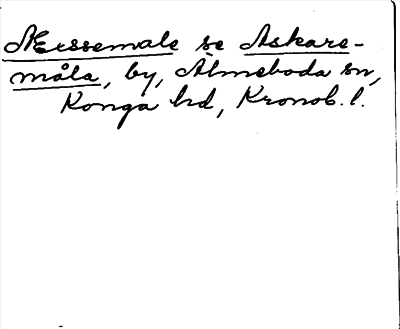 Æissemale se Askare-
måla, by, Älmeboda sn,
Konga hd, Kronob. l.